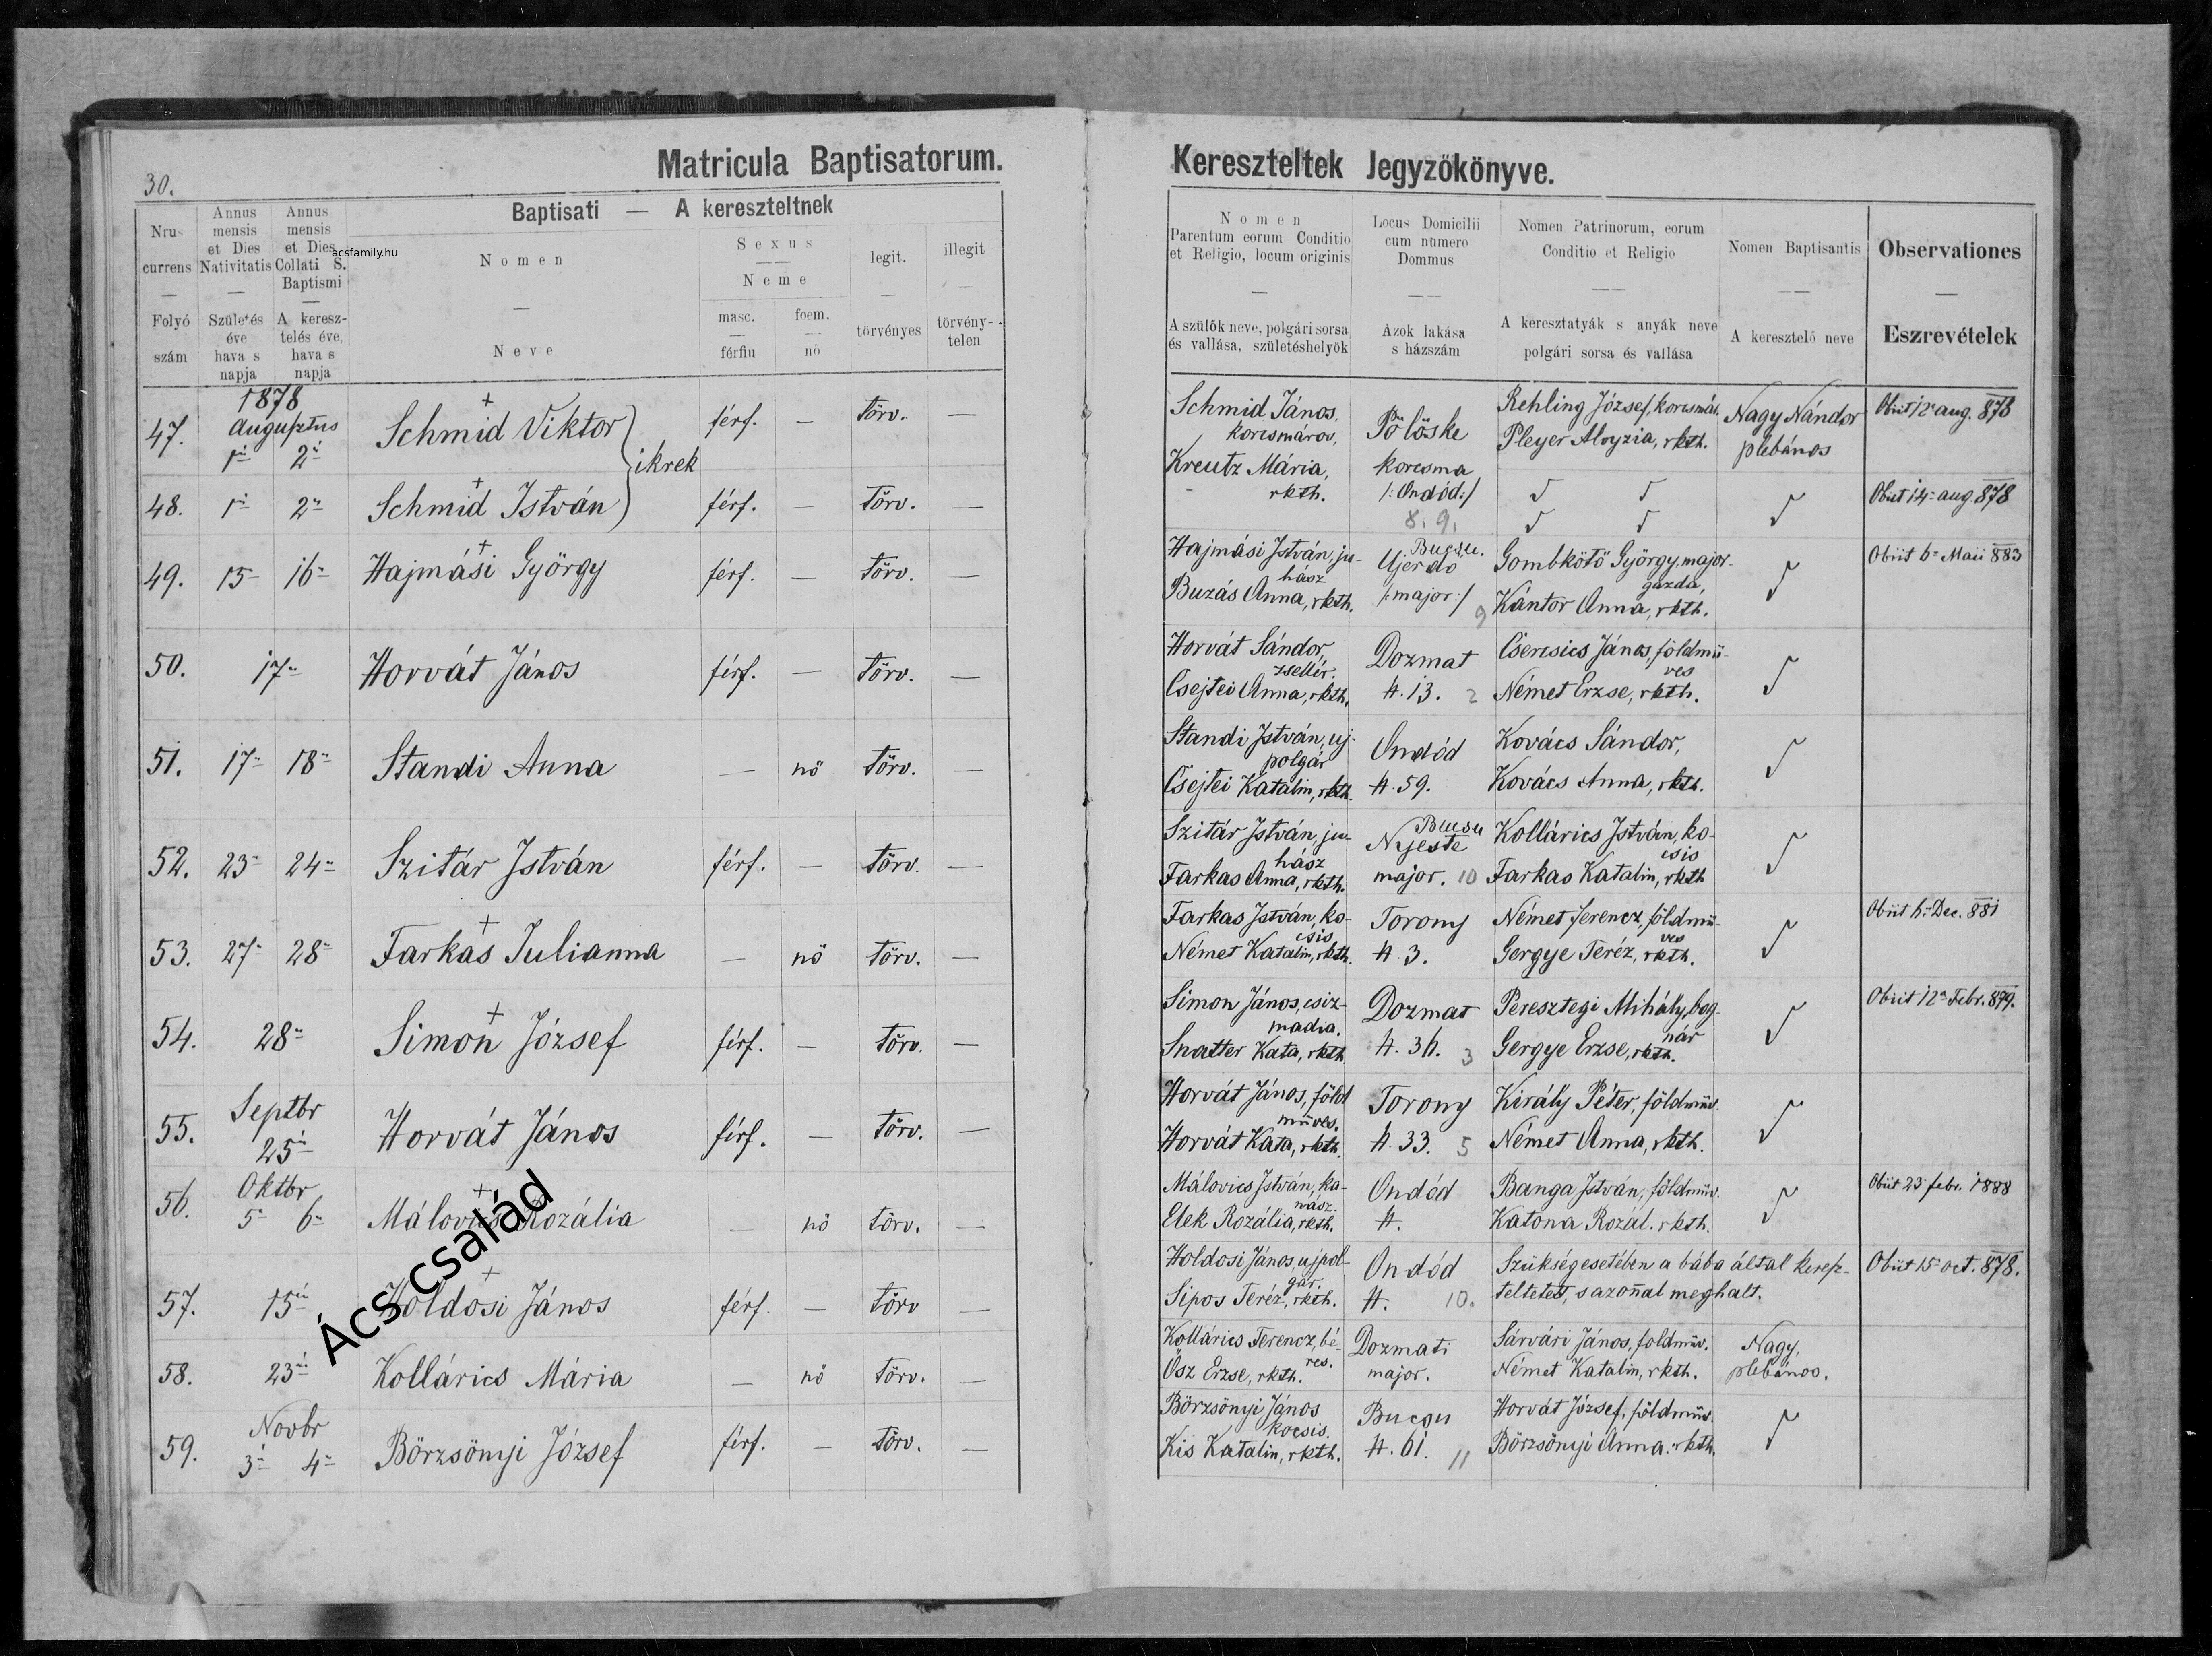 30.
Matricula Baptisatorum.
Nrus
currens
—
Folyó
szám
Annus
mensis
et Dies
Nativitatis
—
Születés
éve
hava s
napja
Annus
mensis
et Dies
Collati S.
Baptismi
—
A keresz-
telés éve,
hava s
napja
acsfamily.hu
Baptisati — A kereszteltnek
Nomen
—
Neve
Sexus
Neme
masc.
férfiu
foem.
nő
legit.
—
törvényes
illegit
—
törvény-
telen
1878
Augusztus
47. 1 2 Schmid Viktor férf. — törv. —
ikrek
48. 1 2 Schmid István férf. — törv. —
49. 15 16 Hajmási György férf. — törv. —
50. 17 Horvát János férf. — törv. —
51. 17 18 Standi Anna — nő törv. —
52. 23 24 Szitár István férf. — törv. —
53. 27 28 Farkas Julianna — nő törv. —
54. 28 Simon József férf. — törv. —
Septbr
55. 25 Horvát János férf. — törv. —
Oktbr
56. 5 6 Málovics Rozália — nő törv. —
57. 15 Holdosi János férf. — törv —
58. 23 Kollárics Mária — nő törv. —
Novbr
59. 3 4 Börzsönyi József férf. — törv. —
Ács család
Kereszteltek Jegyzőkönyve.
Nomen
Parentum eorum Conditio
et Religio, locum originis
—
A szülők neve, polgári sorsa
és vallása, születéshelyök
Locus Domicilii
cum numero
Dommus
Azok lakása
s házszám
Nomen Patrinorum, eorum
Conditio et Religio
A keresztatyák s anyák neve
polgári sorsa és vallása
Nomen Baptisantis
A keresztelő neve
Observationes
—
Eszrevételek
Schmid János,
korcsmáros,
Kreutz Mária,
rkth.
Pölöske
korcsma
/:Ondód:/
8. 9.
Rehling József, korcsmár.
Pleyer Aloyzia, rkth.
Nagy Nándor
plébános
Obiit 12 aug. 878
Obiit 14 aug. 878
Hajmási István, ju-
hász
Buzás Anna, rkth.
Bucsu.
Ujerdö
/:major:/ 9
Gombkötö György, major-
gazda,
Kántor Anna, rkth.
Obiit 6 Maii 883
Horvát Sándor,
zsellér.
Csejtei Anna, rkth.
Dozmat
H. 13. 2
Csercsics János, földmü-
ves
Német Erzse, rkth.
Standi István, uj-
polgár
Csejtei Katalin, rkth.
Ondód
H. 59.
Kovács Sándor,
Kovács Anna, rkth.
Szitár István, ju-
hász
Farkas Anna, rkth.
Bucsu
Nyeste
major. 10
Kollárics István, ko-
csis
Farkas Katalin, rkth
Farkas István, ko-
csis
Német Katalin, rkth.
Torony
H. 3.
Német Ferencz, földmü-
ves
Gergye Teréz, rkth.
Obiit 6 Dec. 881
Simon János, csiz-
madia.
Snatter Kata, rkth
Dozmat
H. 36. 3
Peresztegi Mihály, bog-
nár
Gergye Erzse, rkth.
Obiit 12 Febr. 879.
Horvát János, föld
müves.
Horvát Kata, rkth.
Torony
H. 33. 5
Király Péter, földmüv.
Német Anna, rkth.
Málovics István, ka-
nász.
Elek Rozália, rkth.
Ondód
H.
Banga István, földmüv.
Katona Rozál. rkth.
Obiit 23 febr. 1888
Holdosi János, ujpol-
gár.
Sipos Teréz, rkth.
Ondód
H. 10.
Szükség esetében a bába által keresz-
teltetett, s azoñal meghalt.
Obiit 15 oct. 878.
Kollárics Ferencz, bé-
res.
Ösz Erzse, rkth.
Dozmati
major.
Sárvári János, földmüv.
Német Katalin, rkth.
Nagy,
plebános.
Börzsönyi János
kocsis.
Kis Katalin, rkth.
Bucsu
H. 61. 11
Horvát József, földmüv.
Börzsönyi Anna. rkth.